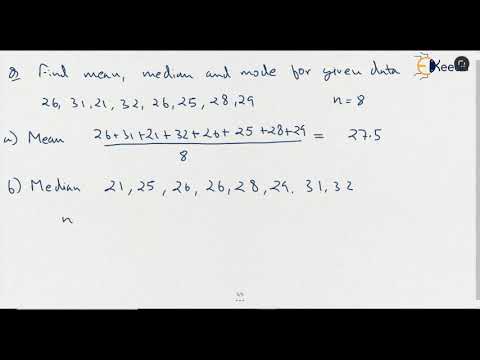 Q Find mean, median and mode for given data
26, 31, 21, 32, 26, 25, 28, 29 n = 8
a) Mean 26+31+21+32+26+25+28+29 = 27.5
8
b) Median 21, 25, 26, 26, 28, 29, 31, 32
n